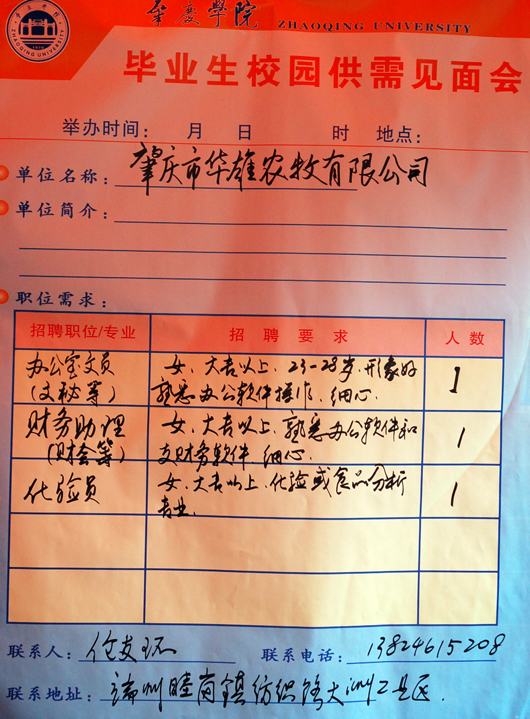 肇慶學院 ZHAOQING UNIVERSITY
毕业生校园供需见面会
举办时间： 月 日 时 地点：
单位名称：肇庆市华雄农牧有限公司
单位简介：
职位需求：
招聘职位/专业 招聘要求 人数
办公室文员 女、大专以上、23-28岁、形象好 1
(文秘等) 熟悉办公软件操作、细心.
财务助理 女、大专以上、熟悉办公软件和 1
(财会等) 财务软件 细心.
化验员 女、大专以上、化验或食品分析 1
专业.
联系人： 联系电话：13824615208
联系地址：端州睦岗镇纺织路大洲工业区.